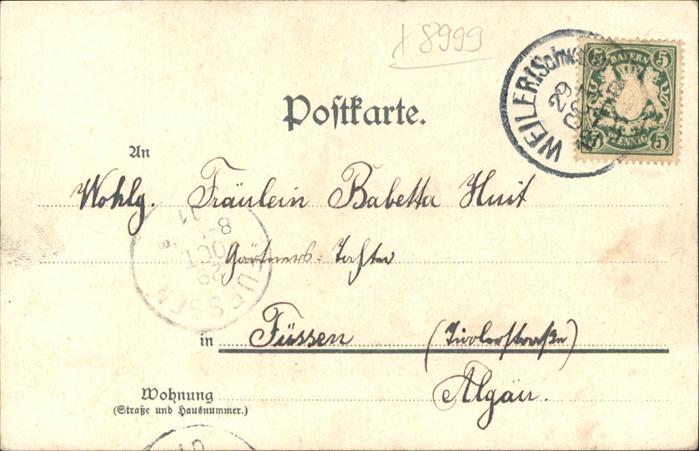 x 8999
WEILER i. Schw
29
BAYERN
5 5
5 PFENNIG 5
Postkarte.
An
Wohlg. Fräulein Babetta Huit
Gärtners-Tochter
FUESSEN
29
OCT
8-
01
in Füssen (Tirolerstraße)
Algäu.
Wohnung
(Straße und Hausnummer.)